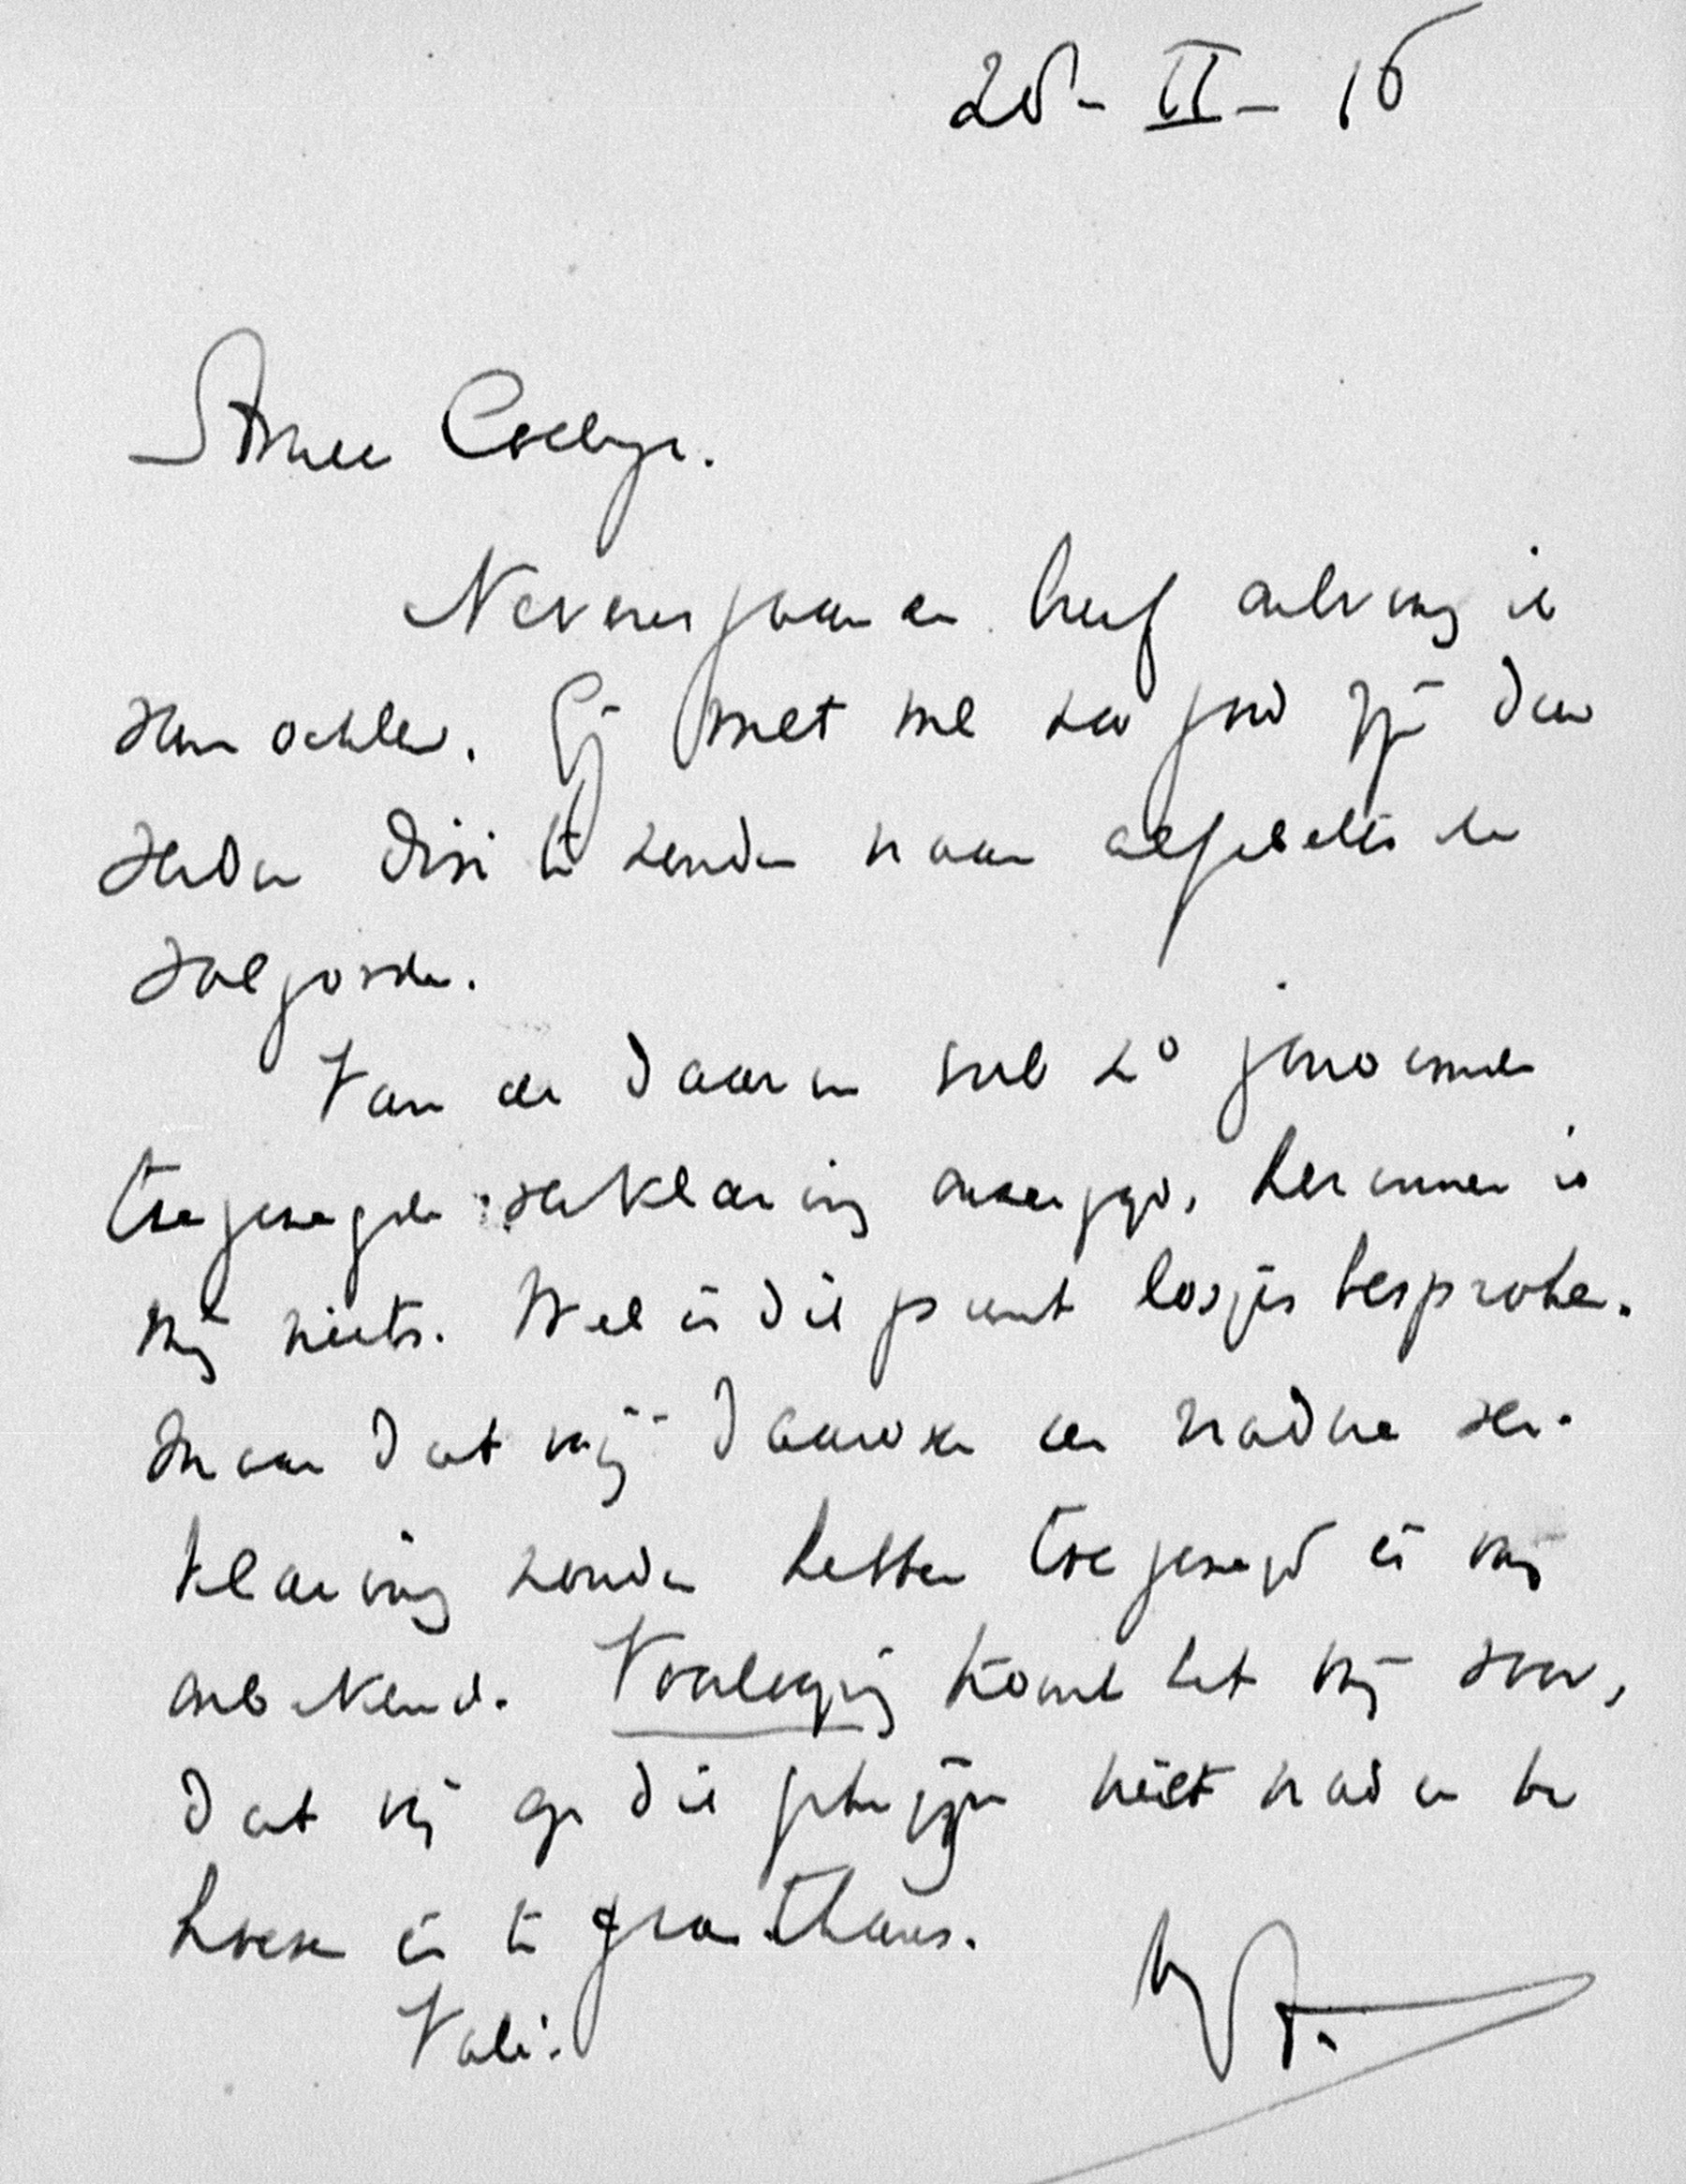 25-II-16
Amice Collega.
Nevensgaanden brief ontving ik
van ochtend. Gij moet me zoo goed zijn dien
verder te zenden naar
volgorde.
Van de daarin sub 2° genoemde
toegezegde verklaring onzerzijds, herinner ik
mij niets. Wel is dit punt losjes besproken.
Maar dat wij daarover een nadere ver-
klaring zouden hebben toegezegd is mij
onbekend. Voorloopig komt het mij voor,
dat wij op die zaken niet nader te
hoeven in te gaan. Thans.
Vale!